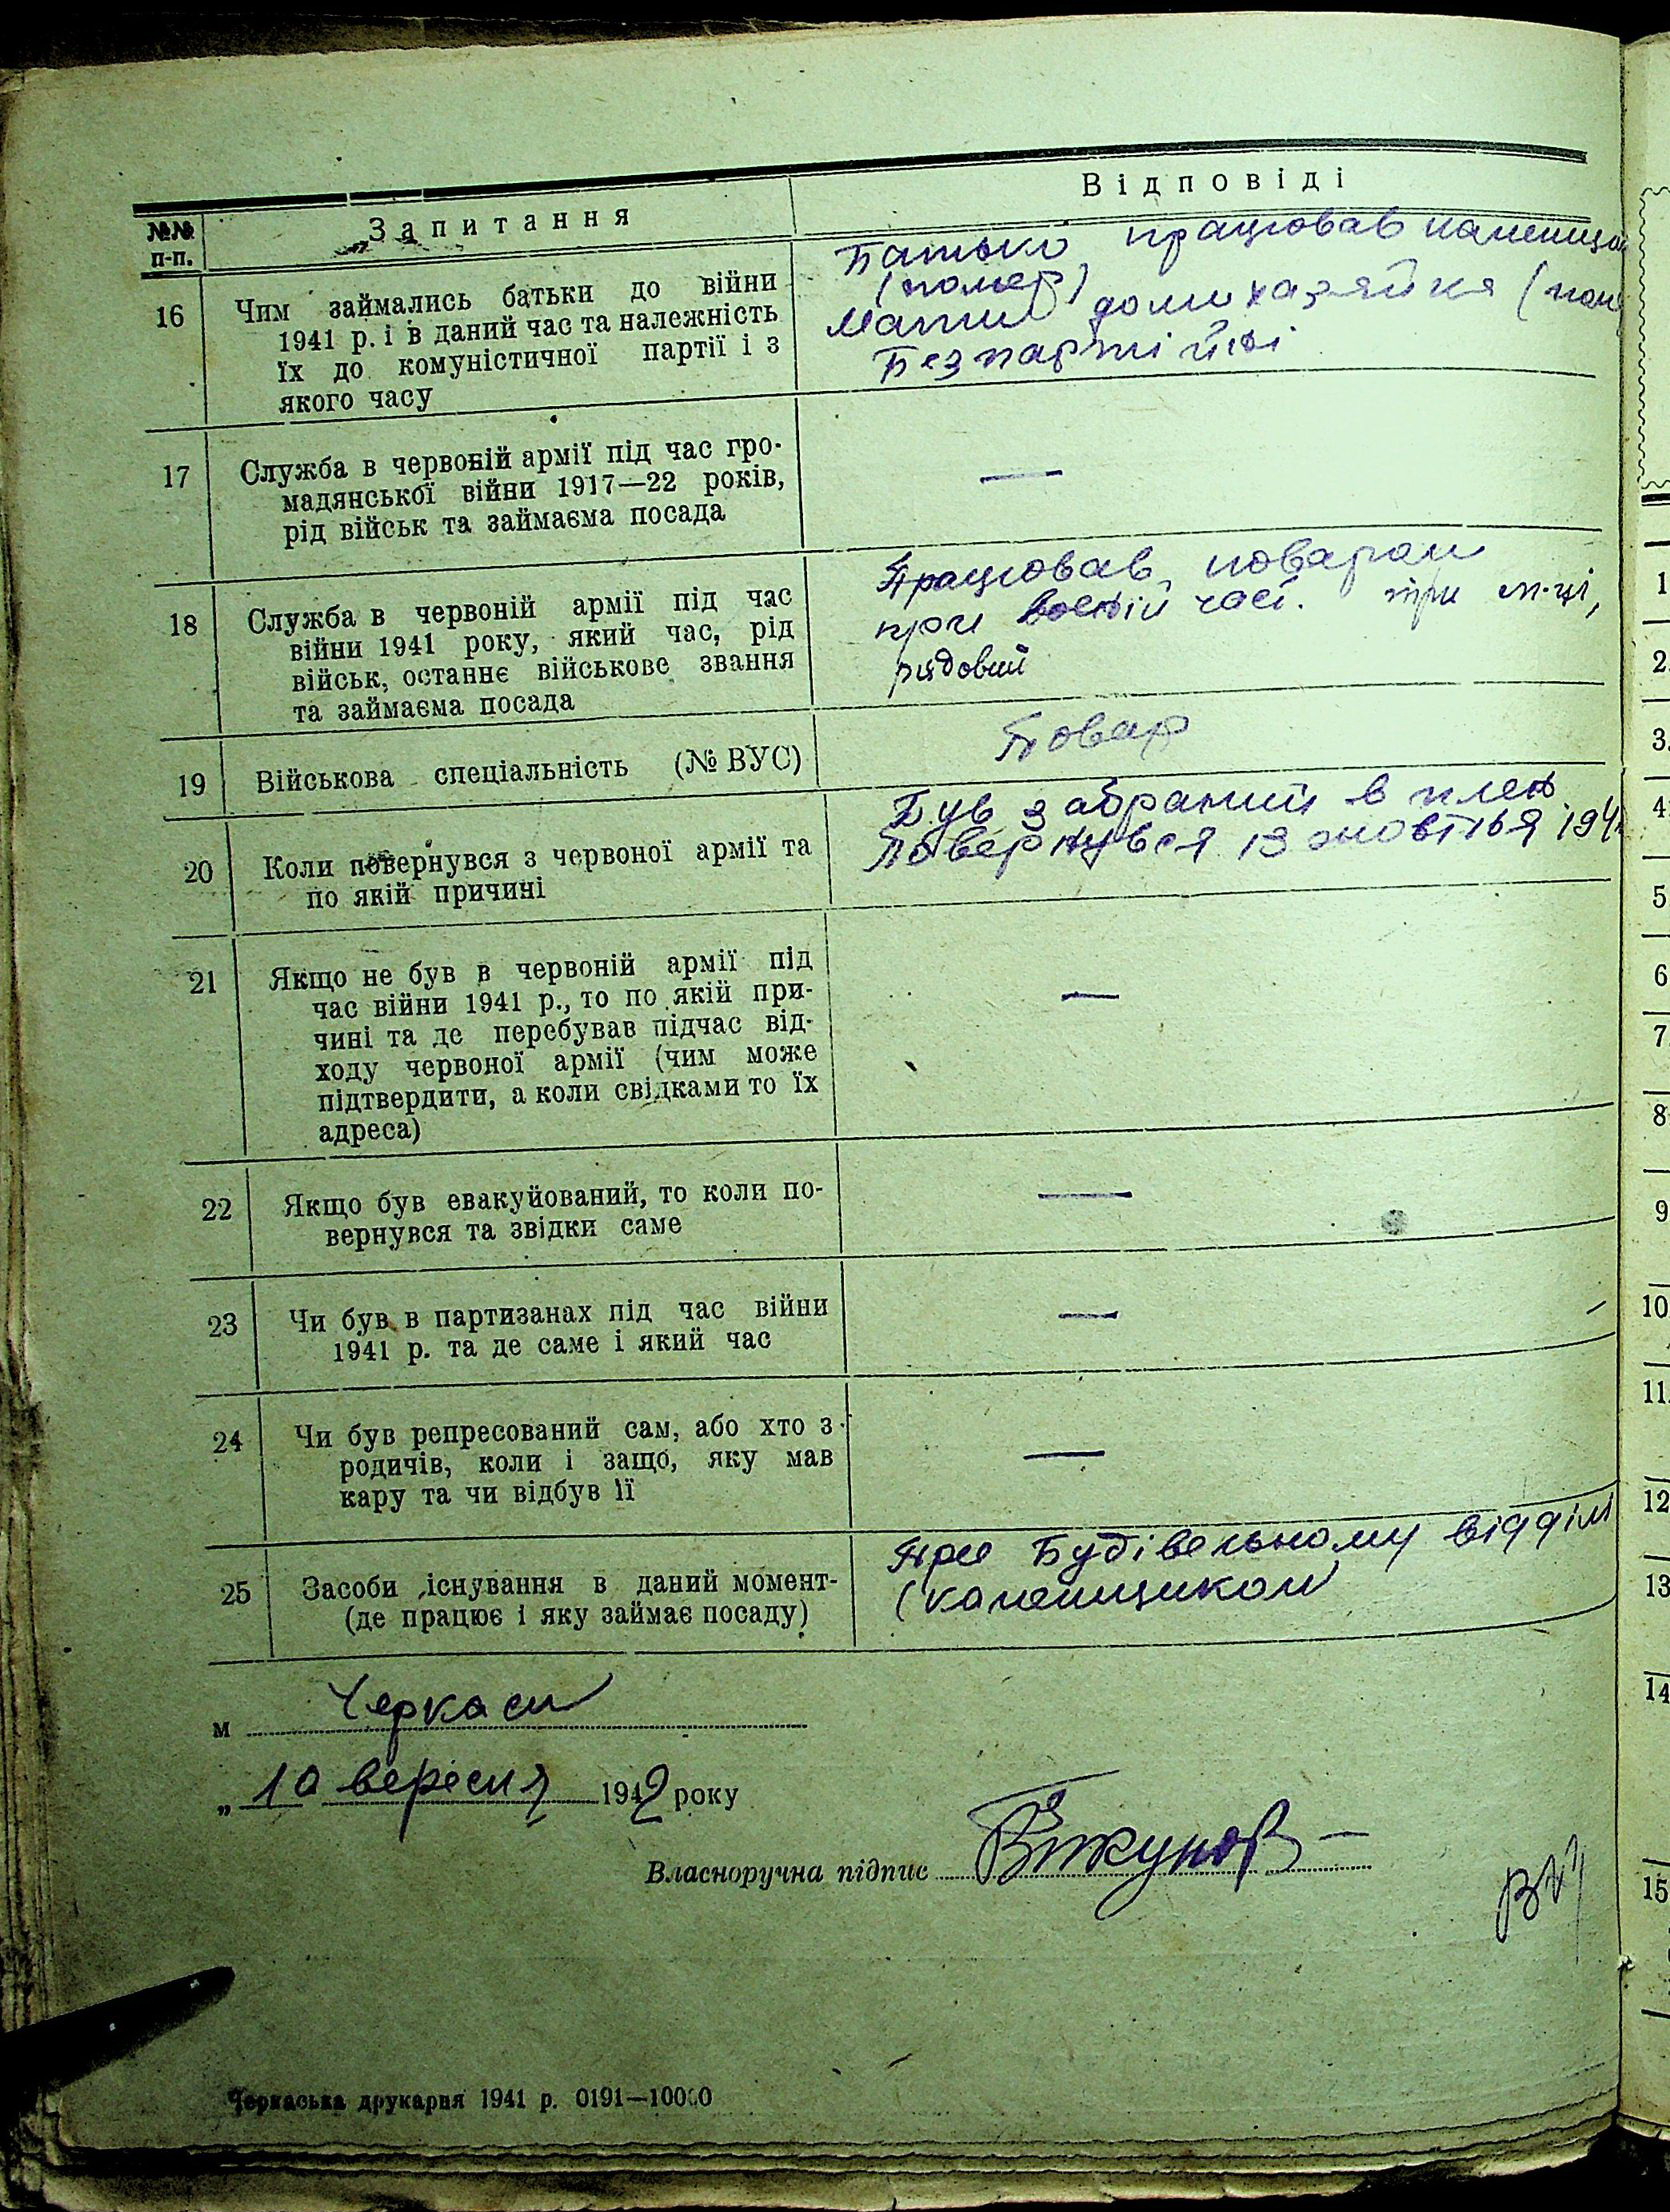 №№ п-п.
Запитання
Відповіді
16
Чим займались батьки до війни
1941 р. і в даний час та належність
їх до комуністичної партії і з
якого часу
Батько працював
(помер)
Мати домихазяйка
Безпартійні
17
Служба в червоній армії під час гро-
мадянської війни 1917—22 років,
рід військ та займаєма посада
—
18
Служба в червоній армії під час
війни 1941 року, який час, рід
військ, останнє військове звання
та займаєма посада
Працював поваром
при воєній част. три м-ці,
рядовий
19
Військова спеціальність (№ ВУС)
Повар
20
Коли повернувся з червоної армії та
по якій причині
Був забраний в плен
Повернувся 13 жовтня
21
Якщо не був в червоній армії під
час війни 1941 р., то по якій при-
чині та де перебував підчас від-
ходу червоної армії (чим може
підтвердити, а коли свідками то їх
адреса)
—
22
Якщо був евакуйований, то коли по-
вернувся та звідки саме
—
23
Чи був в партизанах під час війни
1941 р. та де саме і який час
—
24
Чи був репресований сам, або хто з
родичів, коли і защо, яку мав
кару та чи відбув її
—
25
Засоби існування в даний момент-
(де працює і яку займає посаду)
При Будівельному відділі
(каменщиком
м Черкаси
„ 10 вересня 1942 року
Власноручна підпис
Черкаська друкарня 1941 р. 0191—10000
1
2.
3.
4
5
6
7
8
9
10
11.
12
13
14
15